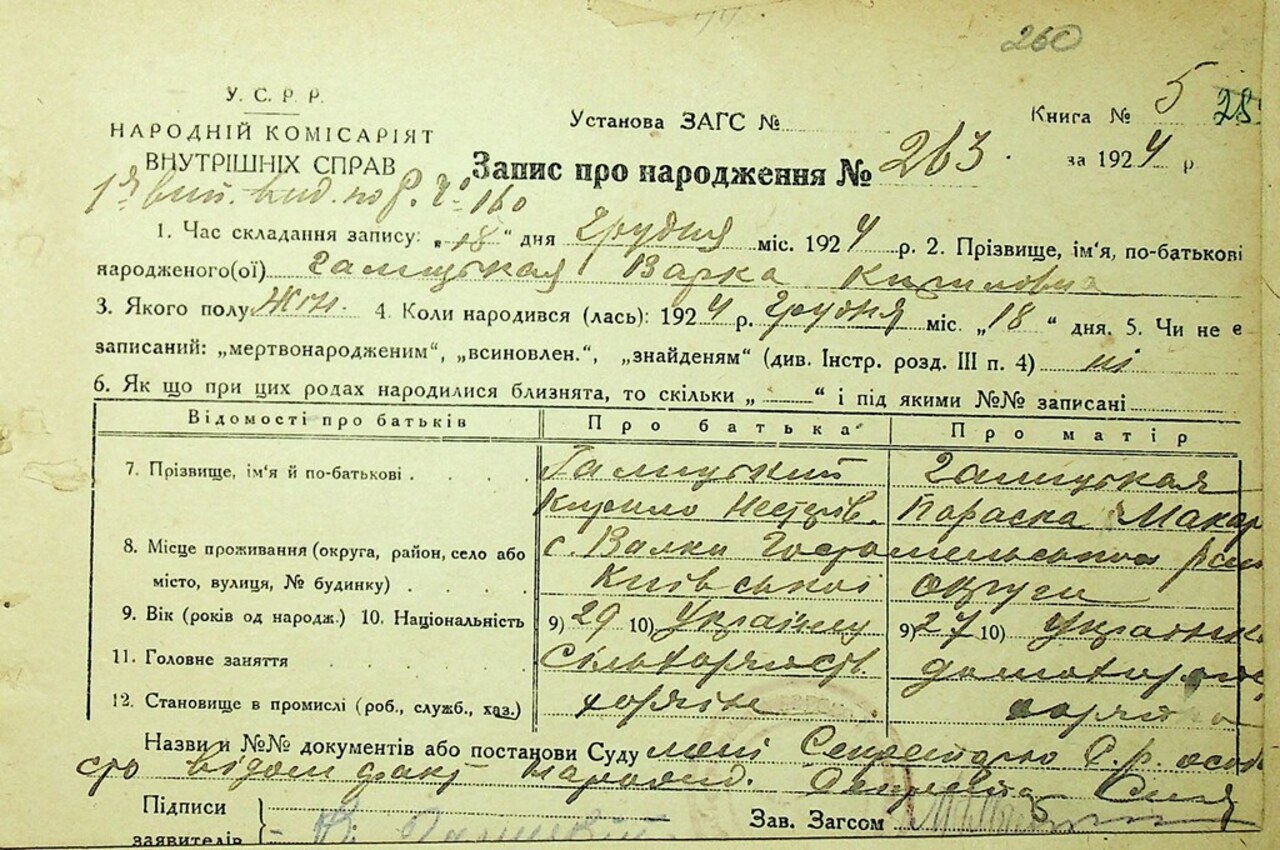 260
У. С. Р. Р.
НАРОДНІЙ КОМІСАРІЯТ
ВНУТРІШНІХ СПРАВ
Установа ЗАГС №
Книга № 5 28
Запис про народження № 263. за 1924 р
по Р. № 160
1. Час складання запису: „18“ дня Грудня міс. 1924 р. 2. Прізвище, ім'я, по-батькові
народженого(ої) Галицькая Варка Кириловна
3. Якого полу Жін. 4. Коли народився (лась): 1924 р. Грудня міс. „18“ дня. 5. Чи не є
записаний: „мертвонародженим“, „всиновлен.“, „знайденям“ (див. Інстр. розд. III п. 4) ні
6. Як що при цих родах народилися близнята, то скільки „ “ і під якими №№ записані
Відомості про батьків Про батька Про матір
7. Прізвище, ім'я й по-батькові Галицький Галицькая
Кирило Нестерів. Параска Макар
8. Місце проживання (округа, район, село або с. Валки Гостомельського
місто, вулиця, № будинку) Київської округи
9. Вік (років од народж.) 10. Національність 9) 29 10) 9) 27 10)
11. Головне заняття
12. Становище в промислі (роб., служб., хаз.) хазяїн
Назви и №№ документів або постанови Суду мені Секретарю С.р. особ
сто відом факт народж.
Підписи
заявителів Зав. Загсом